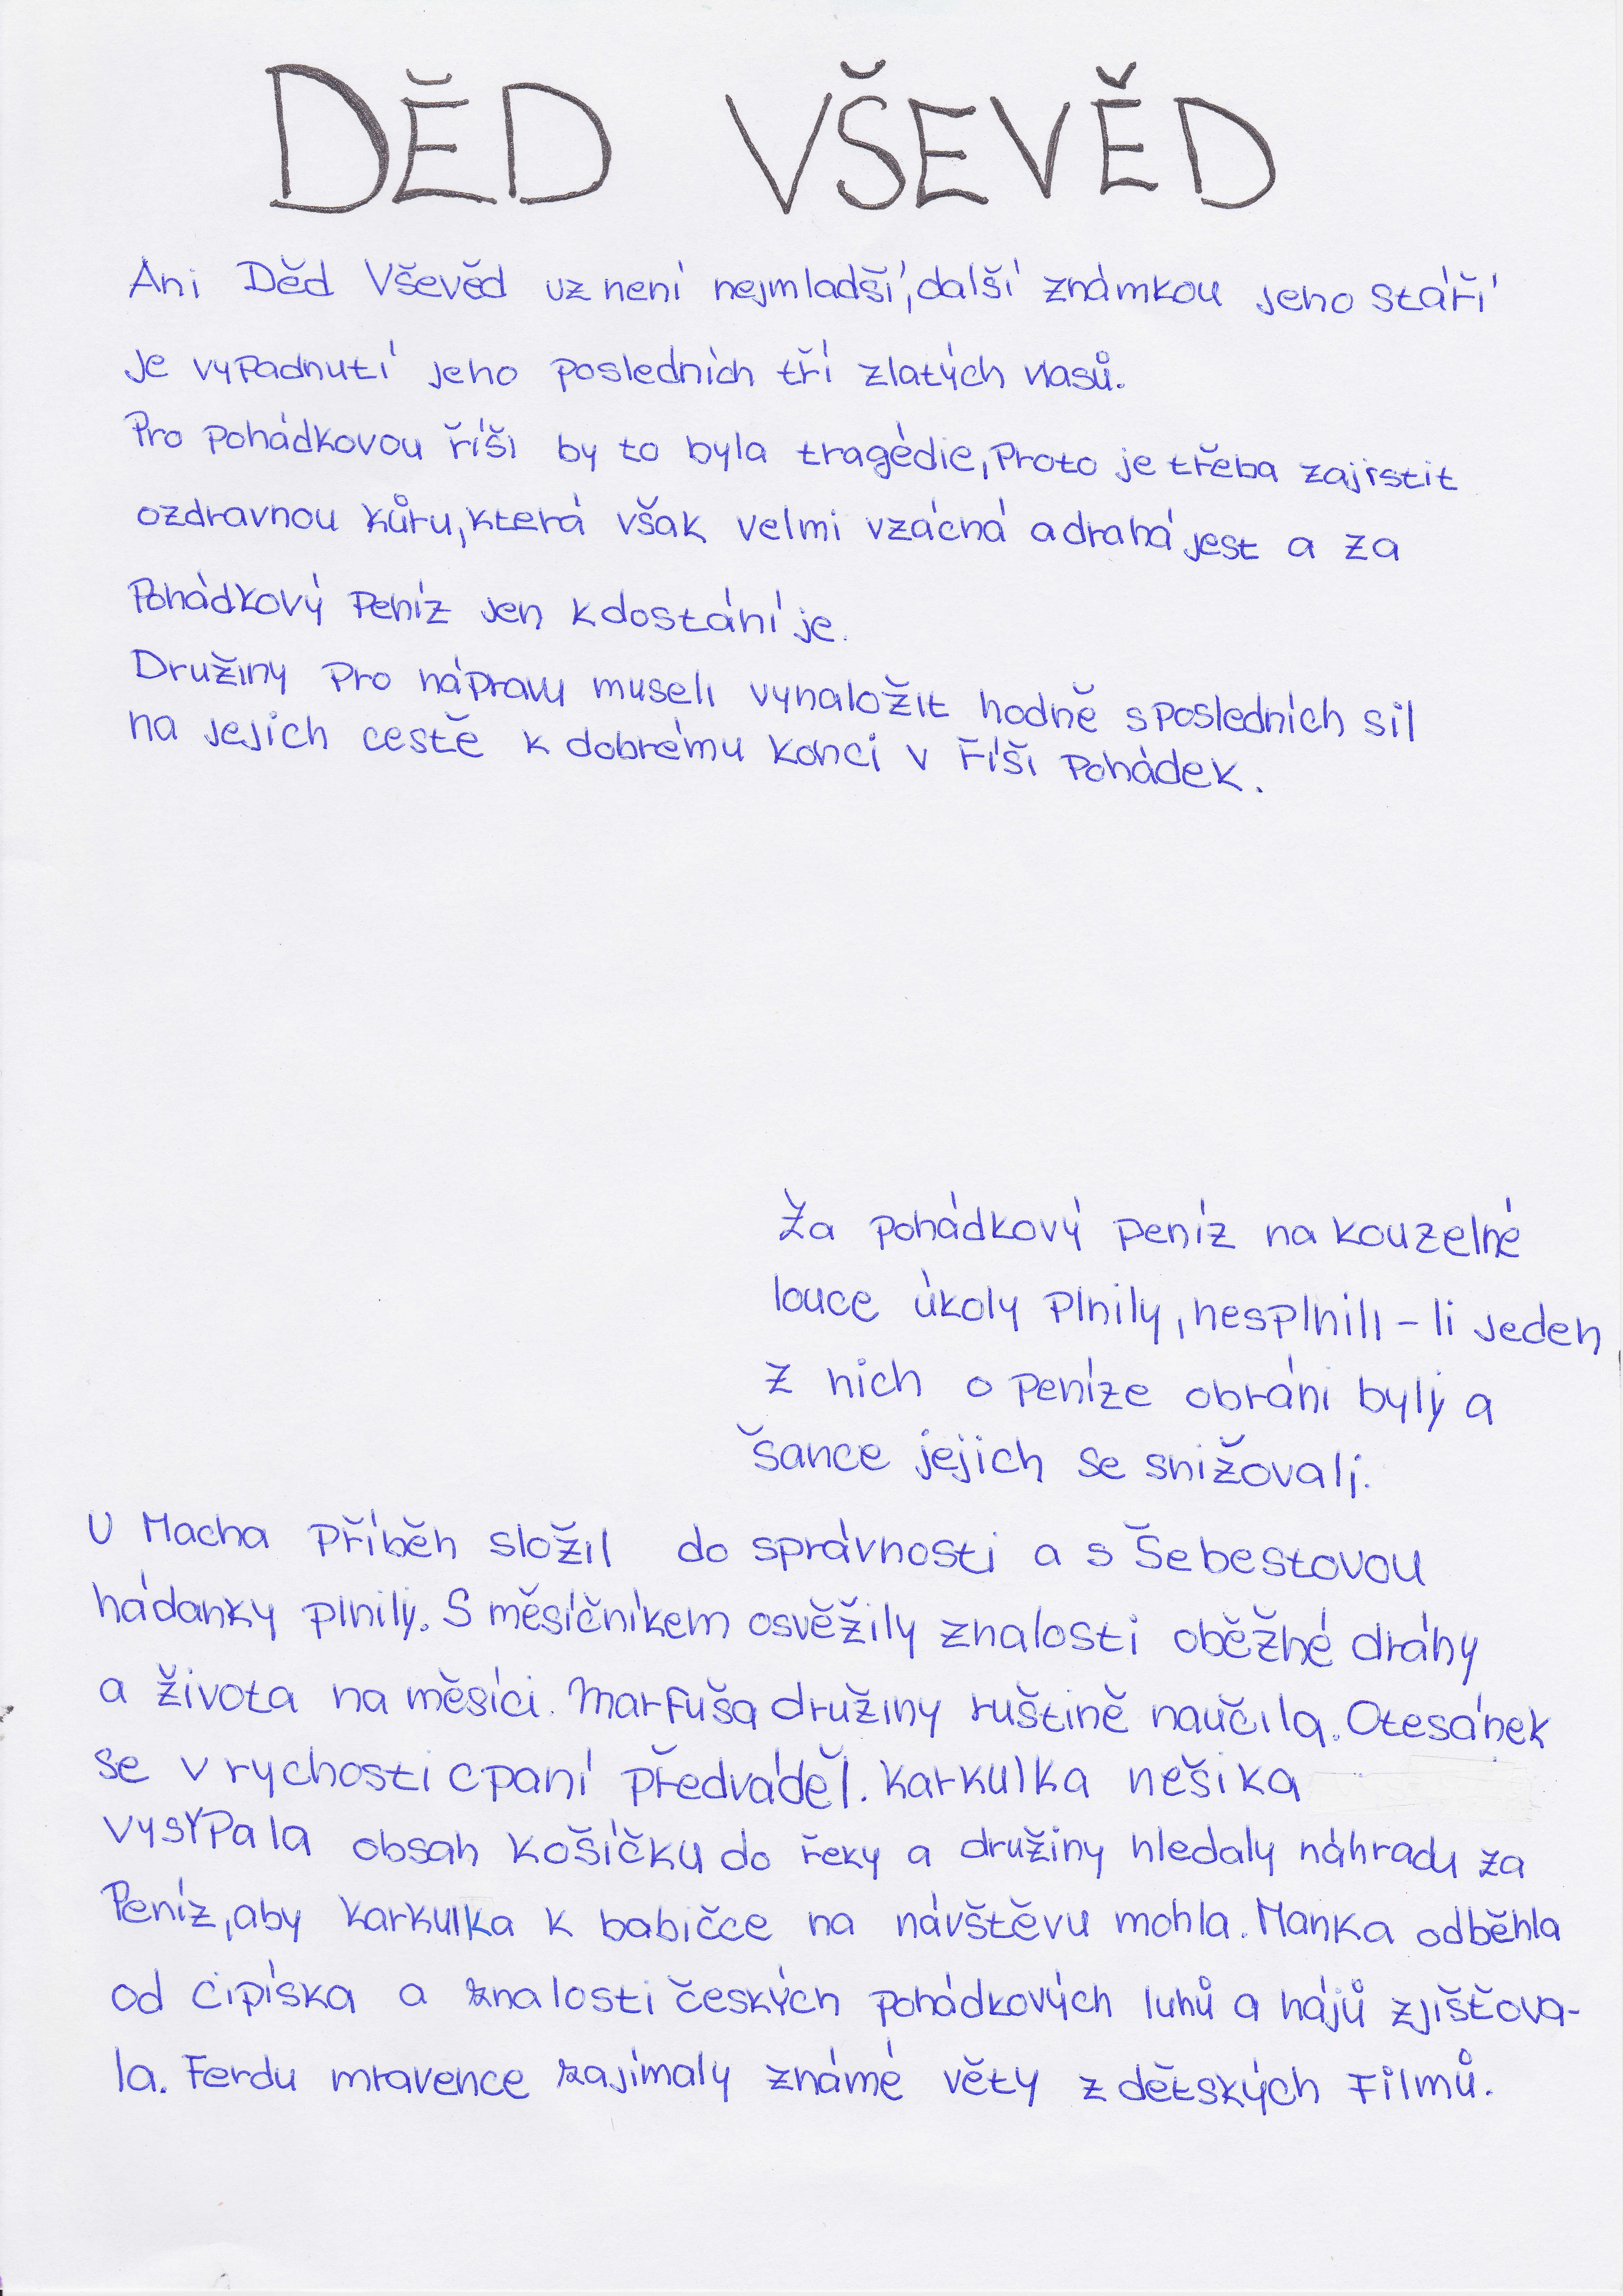 DĚD VŠEVĚD
Ani Děd Vševěd uz není nejmladší, další známkou jeho stáří
je vypadnutí jeho posledních tří zlatých vlasů.
Pro pohádkovou říši by to byla tragédie, Proto je třeba zajistit
ozdravnou kůru, která však velmi vzácná a drahá jest a za
Pohádkový Peníz jen k dostání je.
Družiny Pro nápravu museli vynaložit hodně s posledních sil
na jejich cestě k dobrému konci v Říši Pohádek.
Za pohádkový peníz na kouzelné
louce úkoly Plnily, nesplnili-li jeden
z nich o Peníze obráni byly a
šance jejich se snižovali.
U Macha Příběh složil do správnosti a s Šebestovou
hádanky plnily. S měsíčníkem osvěžily znalosti oběžné dráhy
a života na měsíci. Marfuša družiny ruštině naučila. Otesánek
se v rychosti cpaní předváděl. Karkulka nešika
vysypala obsah košíčku do řeky a družiny hledaly náhradu za
Peníz, aby Karkulka k babičce na návštěvu mohla. Manka odběhla
od Cipíska a znalosti českých pohádkových luhů a hájů zjišťova-
la. Ferdu mravence zajímaly známé věty z dětských Filmů.